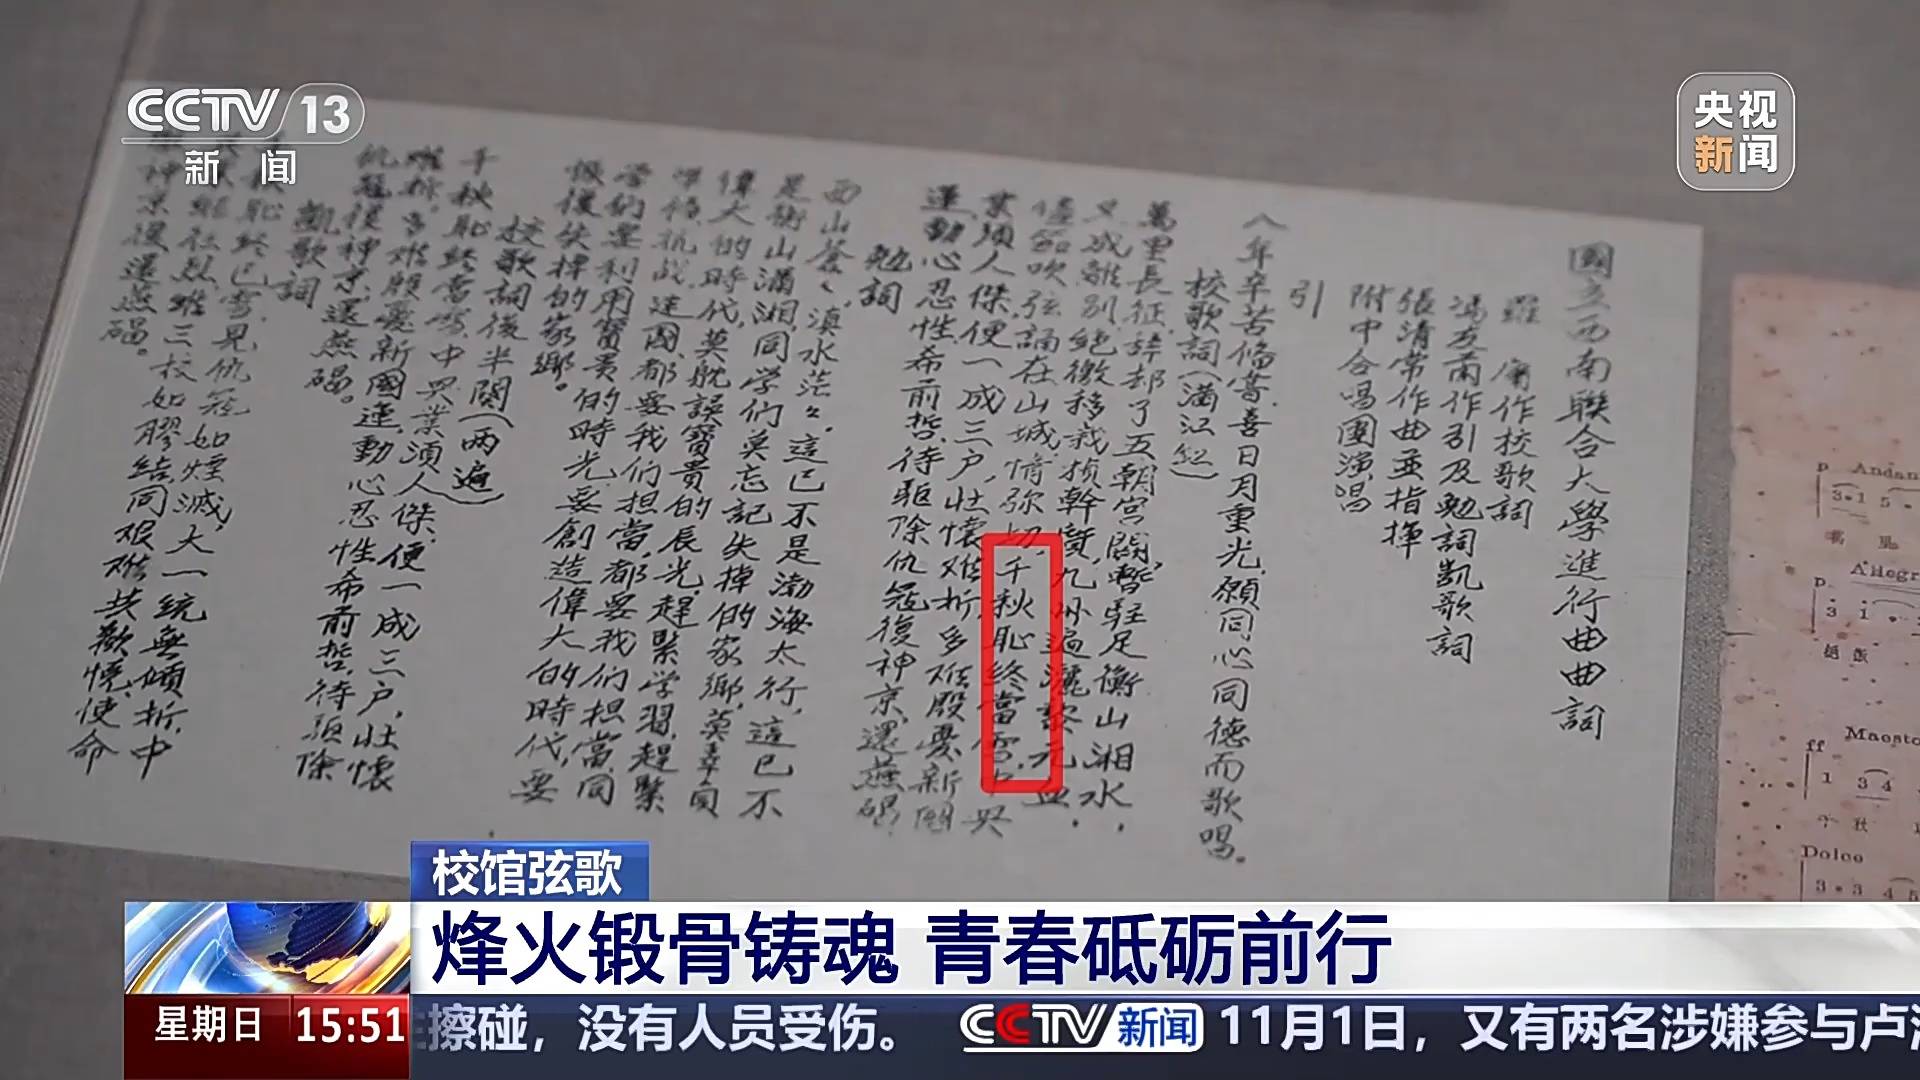 CCTV 13
新闻
央视
新闻
國立西南聯合大學進行曲曲詞
羅庸作校歌詞
馮友蘭作引及勉詞凱歌詞
張清常作曲並指揮
附中合唱團演唱
引
八年辛苦備嘗,喜日月重光,願同心同德而歌唱。
校歌詞(滿江紅)
萬里長征,辭却了五朝宮闕,暫駐足衡山湘水,
又成離別,絕徼移栽楨幹質,九州遍灑黎元血.
儘笳吹弦誦在山城,情弥切,千秋恥終當雪,中興
業須人傑,便一成三户,壯懷难折,多难殷憂新國
運,動心忍性希前哲,待驅除仇冦復神京,還燕碣.
勉詞
西山蒼々,滇水茫々,這已不是渤海太行,這已不
是衡山瀟湘,同学們莫忘記失掉的家鄉,莫辜負
偉大的時代,莫躭誤寶貴的辰光,趕緊学習,趕緊
準備抗战建國,都要我们担當,都要我们担當,同
学们要利用寶貴的時光,要創造偉大的時代,要
恢復失掉的家鄉。
校歌詞後半闋(两遍)
千秋恥終當雪,中興業須人傑,便一成三户,壯懷
难折。多难殷憂新國運,動心忍性希前哲,待驅除
仇冦復神京,還燕碣。
凱歌詞
恥終已雪,見仇冦如煙滅,大一統無傾折,中
繼往烈,維三校如膠結,同艱难共歡悅,使命
神京復還燕碣。
p Andan
3 1 5
萬 里
Allegr
p
3 1
絕 徼
Maesto
ff
1 3 4
千 秋
Dolce
3 3 4 5
校馆弦歌
烽火锻骨铸魂 青春砥砺前行
星期日 15:51
擦碰，没有人员受伤。 CCTV新闻 11月1日，又有两名涉嫌参与卢